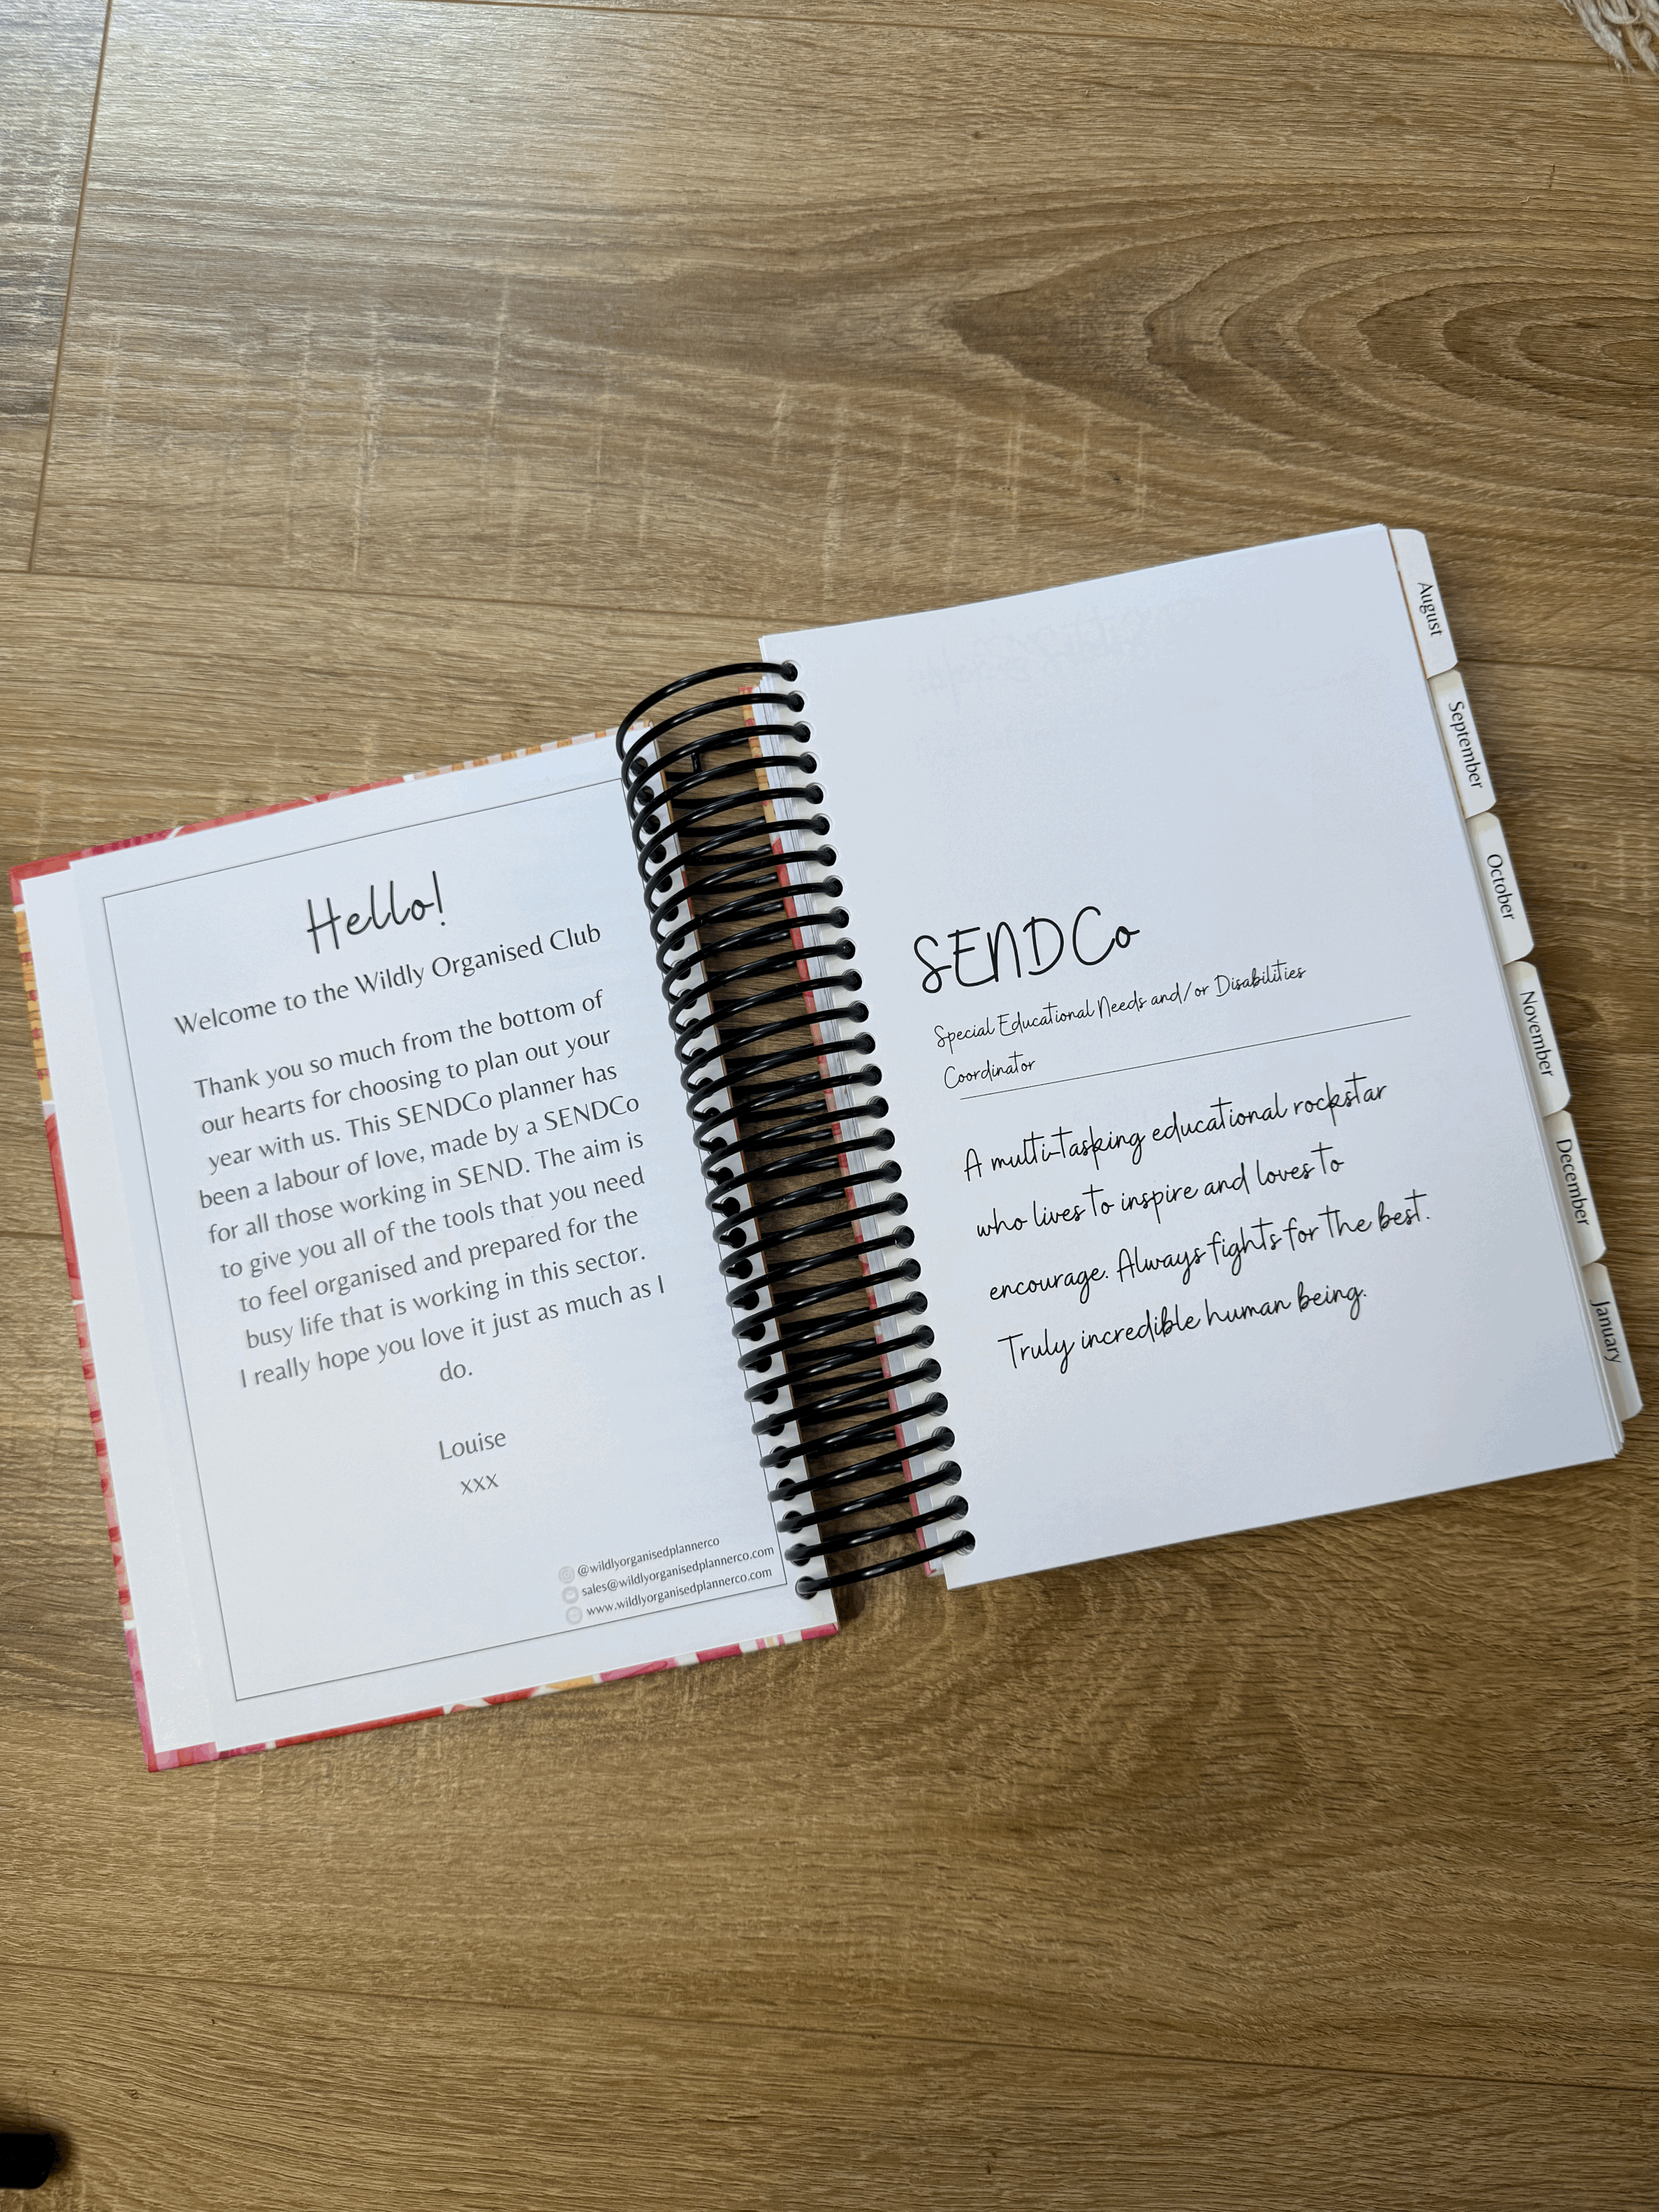 Hello!
Welcome to the Wildly Organised Club
Thank you so much from the bottom of
our hearts for choosing to plan out your
year with us. This SENDCo planner has
been a labour of love, made by a SENDCo
for all those working in SEND. The aim is
to give you all of the tools that you need
to feel organised and prepared for the
busy life that is working in this sector.
I really hope you love it just as much as I
do.
Louise
xxx
@wildlyorganisedplannerco
sales@wildlyorganisedplannerco.com
www.wildlyorganisedplannerco.com
SENDCo
Special Educational Needs and/or Disabilities
Coordinator
A multi-tasking educational rockstar
who lives to inspire and loves to
encourage. Always fights for the best.
Truly incredible human being.
August
September
October
November
December
January